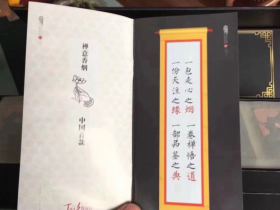 禅意香烟
中国首款
一包走心之烟
一卷禅悟之道
一份天注之缘
一部品鉴之典